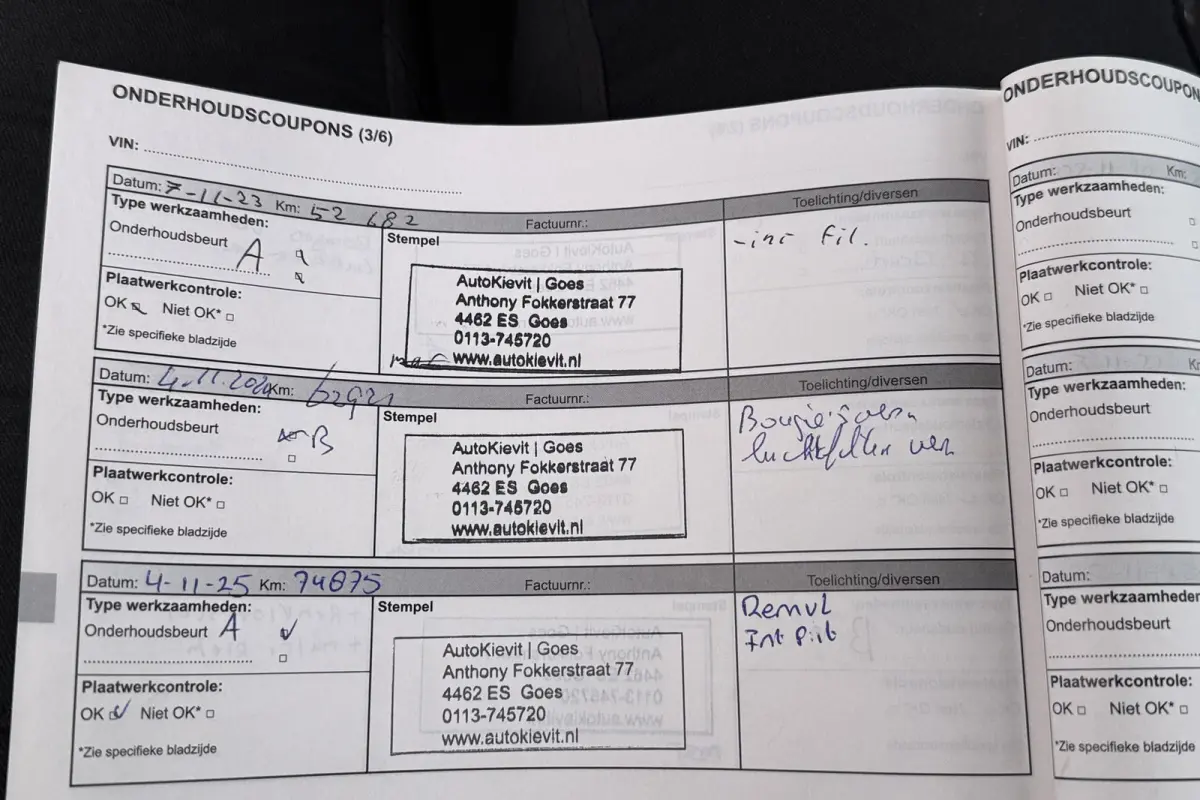 ONDERHOUDSCOUPONS (3/6)
VIN:
Datum: 7-11-23 Km: 52 682 Factuurnr.: Toelichting/diversen
Type werkzaamheden:
Onderhoudsbeurt A
Plaatwerkcontrole:
OK Niet OK*
*Zie specifieke bladzijde
Stempel
AutoKievit | Goes
Anthony Fokkerstraat 77
4462 ES Goes
0113-745720
www.autokievit.nl
- int fil.
Datum: 4.11.2024 Km: Factuurnr.: Toelichting/diversen
Type werkzaamheden:
Onderhoudsbeurt B
Plaatwerkcontrole:
OK Niet OK*
*Zie specifieke bladzijde
Stempel
AutoKievit | Goes
Anthony Fokkerstraat 77
4462 ES Goes
0113-745720
www.autokievit.nl
Bougie's vern
luchtfilter ver
Datum: 4-11-25 Km: 74875 Factuurnr.: Toelichting/diversen
Type werkzaamheden:
Onderhoudsbeurt A
Plaatwerkcontrole:
OK Niet OK*
*Zie specifieke bladzijde
Stempel
AutoKievit | Goes
Anthony Fokkerstraat 77
4462 ES Goes
0113-745720
www.autokievit.nl
Remvl
Int
ONDERHOUDSCOUPON
VIN:
Datum: Km:
Type werkzaamheden:
Onderhoudsbeurt
Plaatwerkcontrole:
OK Niet OK*
*Zie specifieke bladzijde
Datum:
Type werkzaamheden:
Onderhoudsbeurt
Plaatwerkcontrole:
OK Niet OK*
*Zie specifieke bladzijde
Datum:
Type werkzaamheden
Onderhoudsbeurt
Plaatwerkcontrole:
OK Niet OK*
*Zie specifieke bladzijde